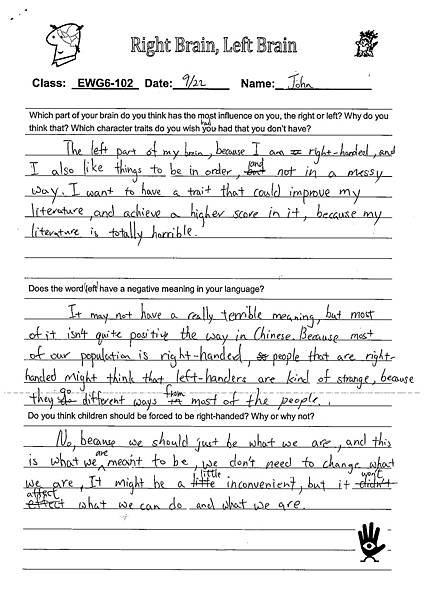 Right Brain, Left Brain
Class: EWG6-102 Date: 9/22 Name: John
Which part of your brain do you think has the most influence on you, the right or left? Why do you
think that? Which character traits do you wish you had that you don't have?
had
The left part of my brain, because I am right-handed, and
I also like things to be in order, and not in a messy
way. I want to have a trait that could improve my
literature, and achieve a higher score in it, because my
literature is totally horrible.
Does the word left have a negative meaning in your language?
It may not have a really terrible meaning, but most
of it isn't quite positive the way in Chinese. Because most
of our population is right-handed, people that are right-
handed might think that left-handers are kind of strange, because
they go different ways from most of the people.
Do you think children should be forced to be right-handed? Why or why not?
No, because we should just be what we are, and this
is what we are meant to be, we don't need to change what
we are, It might be a little inconvenient, but it won't
affect what we can do and what we are.